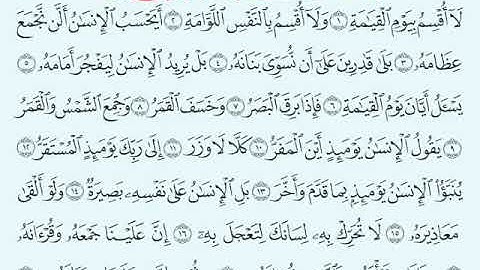 لَآ أُقْسِمُ بِيَوْمِ ٱلْقِيَٰمَةِ ١ وَلَآ أُقْسِمُ بِٱلنَّفْسِ ٱللَّوَّامَةِ ٢ أَيَحْسَبُ ٱلْإِنسَٰنُ أَلَّن نَّجْمَعَ
عِظَامَهُۥ ٣ بَلَىٰ قَٰدِرِينَ عَلَىٰٓ أَن نُّسَوِّىَ بَنَانَهُۥ ٤ بَلْ يُرِيدُ ٱلْإِنسَٰنُ لِيَفْجُرَ أَمَامَهُۥ ٥
يَسْـَٔلُ أَيَّانَ يَوْمُ ٱلْقِيَٰمَةِ ٦ فَإِذَا بَرِقَ ٱلْبَصَرُ ٧ وَخَسَفَ ٱلْقَمَرُ ٨ وَجُمِعَ ٱلشَّمْسُ وَٱلْقَمَرُ
٩ يَقُولُ ٱلْإِنسَٰنُ يَوْمَئِذٍ أَيْنَ ٱلْمَفَرُّ ١٠ كَلَّا لَا وَزَرَ ١١ إِلَىٰ رَبِّكَ يَوْمَئِذٍ ٱلْمُسْتَقَرُّ ١٢
يُنَبَّؤُا۟ ٱلْإِنسَٰنُ يَوْمَئِذٍۭ بِمَا قَدَّمَ وَأَخَّرَ ١٣ بَلِ ٱلْإِنسَٰنُ عَلَىٰ نَفْسِهِۦ بَصِيرَةٌ ١٤ وَلَوْ أَلْقَىٰ
مَعَاذِيرَهُۥ ١٥ لَا تُحَرِّكْ بِهِۦ لِسَانَكَ لِتَعْجَلَ بِهِۦٓ ١٦ إِنَّ عَلَيْنَا جَمْعَهُۥ وَقُرْءَانَهُۥ